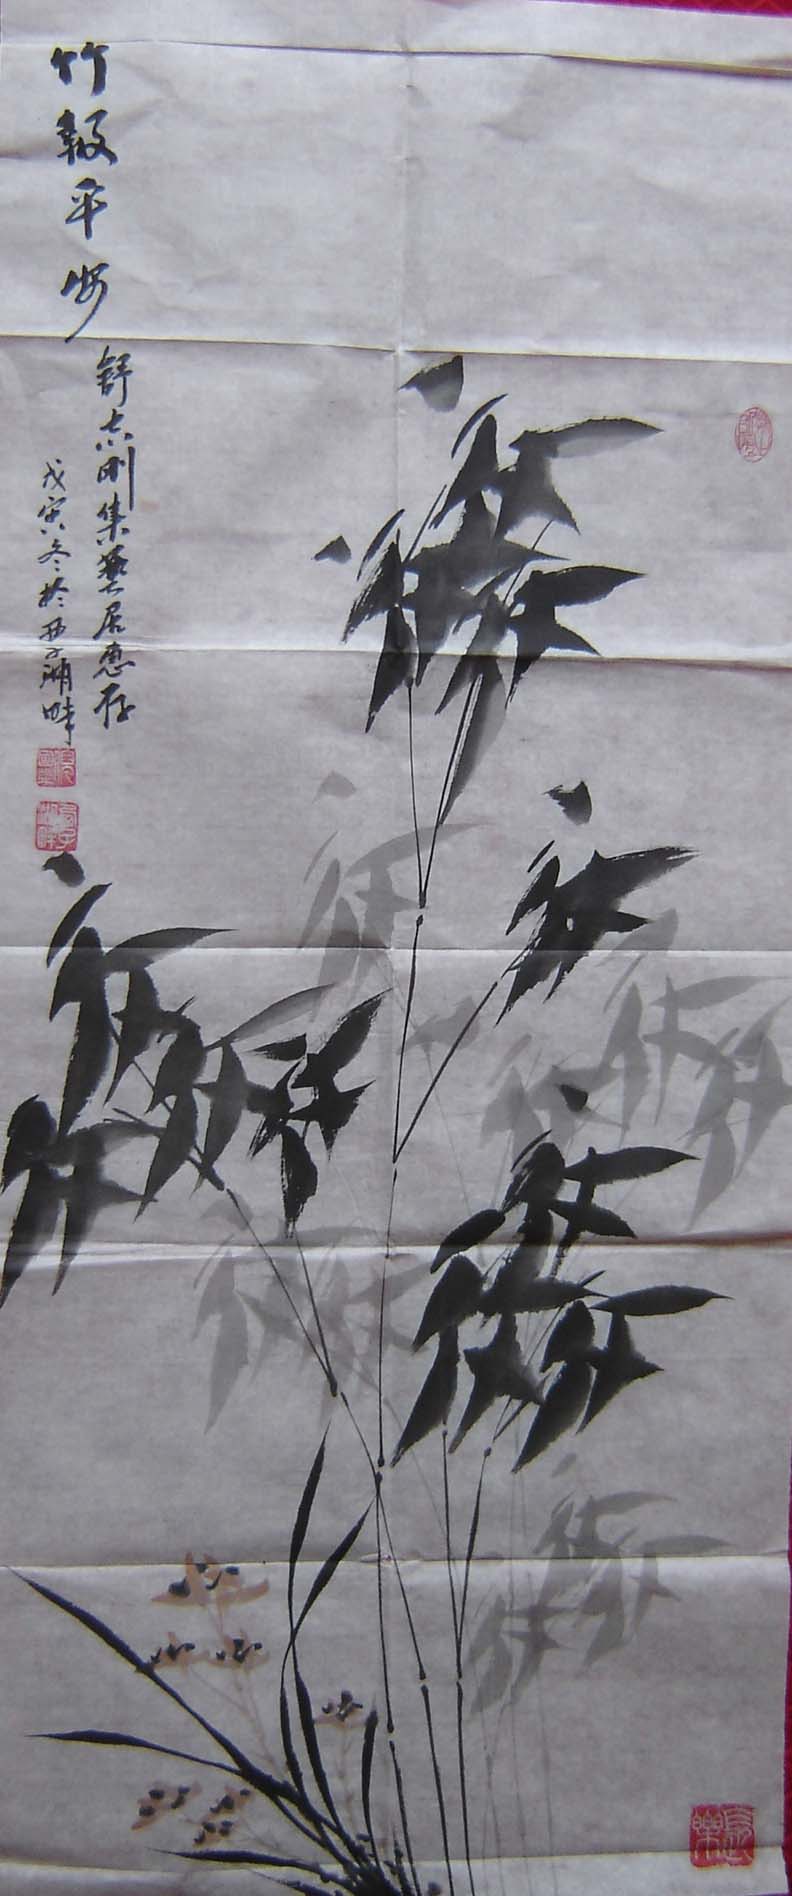 竹報平安
舒志刚集藝居惠存
戊寅冬於西子湖畔